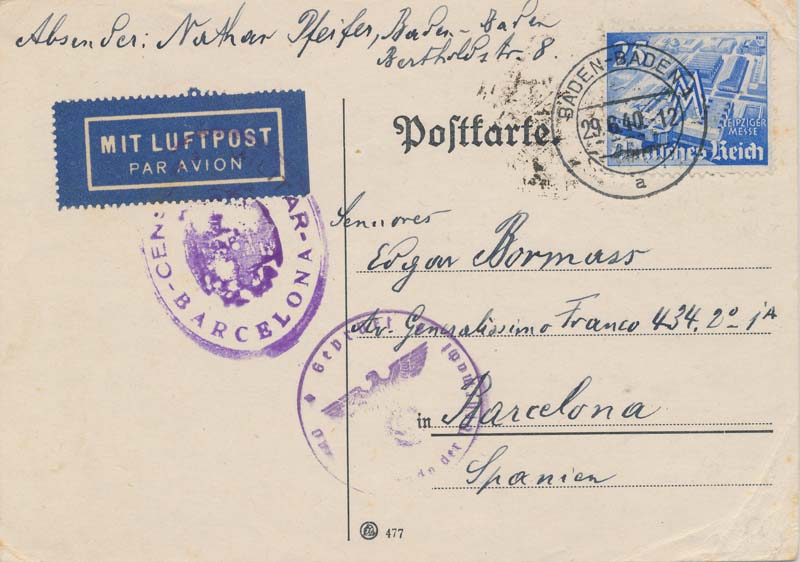 Absender: Nathan Pfeifer, Baden-Baden
Bertholdstr. 8.
MIT LUFTPOST
PAR AVION
Postkarte
BADEN-BADEN
29.6.40.-12
a
25
LEIPZIGER
MESSE
Deutsches Reich
BARCELONA
Gepr
der
Sennores
Edgar Bormass
Av. Generalissimo Franco 434. 2º 1A
in Barcelona
Spanien
477